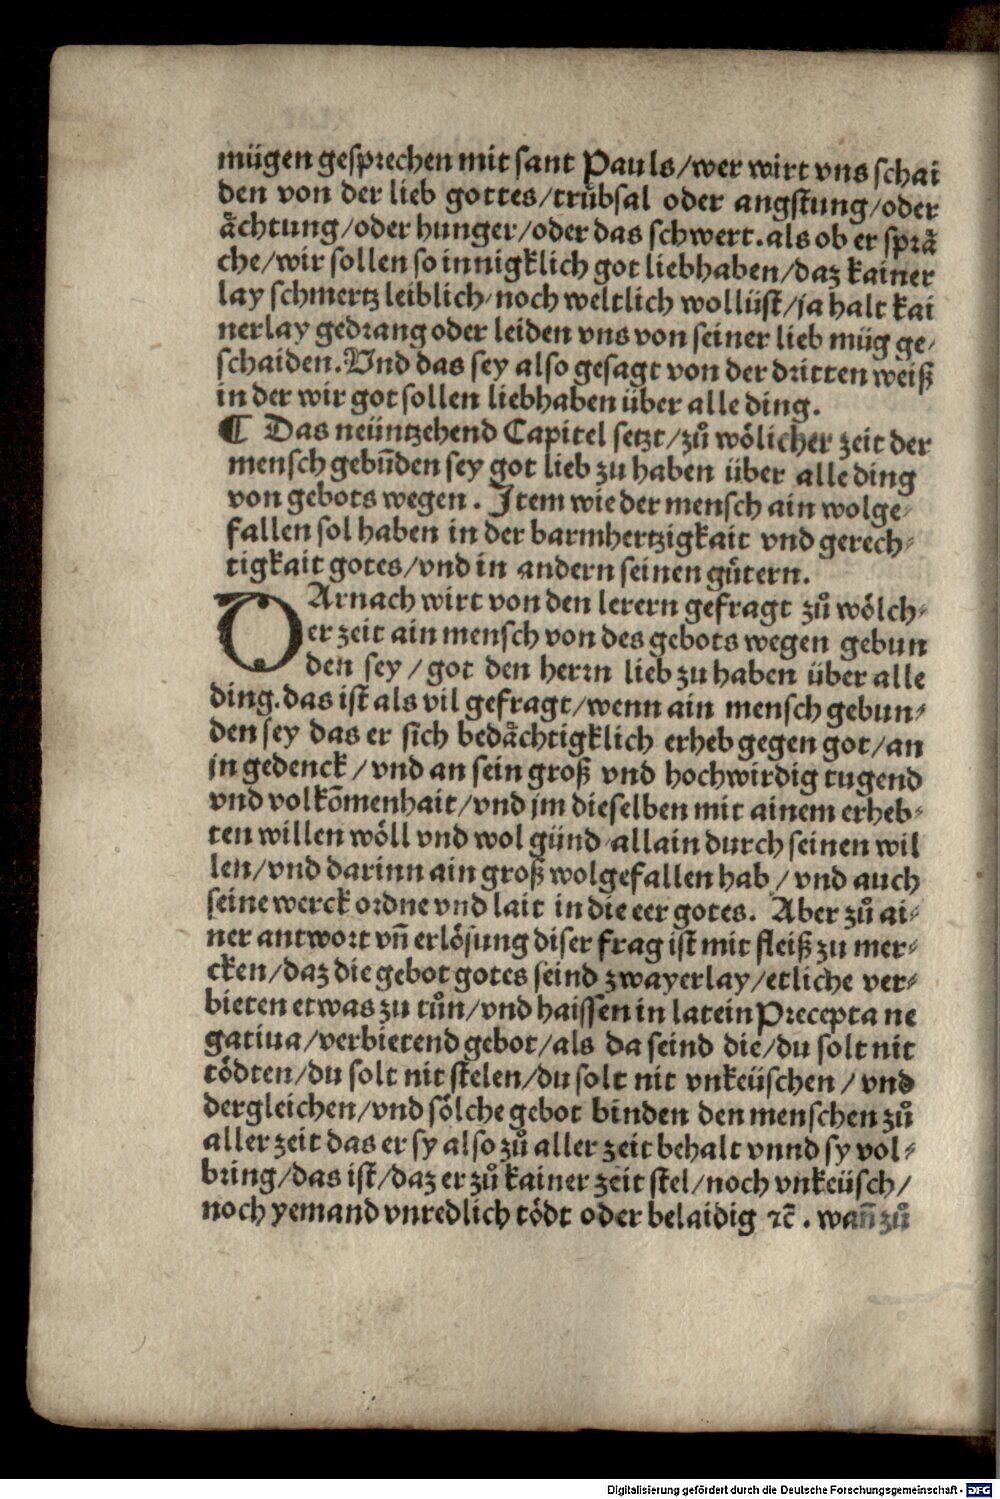 mügen gesprechen mit sant Pauls/wer wirt vns schai
den von der lieb gottes/trübsal oder angstung/oder
aͤchtung/oder hunger/oder das schwert.als ob er spraͤ
che/wir sollen so innigklich got liebhaben/daz kainer
lay schmertz leiblich/noch weltlich wollüst/ja halt kai
nerlay gedrang oder leiden vns von seiner lieb müg ge⸗
schaiden.Vnd das sey also gesagt von der dritten weiß
in der wir got sollen liebhaben über alle ding.
¶ Das neüntzehend Capitel setzt/zuͦ woͤlicher zeit der
mensch gebūden sey got lieb zu haben über alle ding
von gebots wegen. Item wie der mensch ain wolge⸗
fallen sol haben in der barmhertzigkait vnd gerech⸗
tigkait gotes/vnd in andern seinen guͤtern.
DArnach wirt von den lerern gefragt zuͦ woͤlch⸗
er zeit ain mensch von des gebots wegen gebun
den sey/got den herrn lieb zu haben über alle
ding.das ist als vil gefragt/wenn ain mensch gebun⸗
den sey das er sich bedaͤchtigklich erheb gegen got/an
jn gedenck/vnd an sein groß vnd hochwirdig tugend
vnd volkōmenhait/vnd jm dieselben mit ainem erheb⸗
ten willen woͤll vnd wol günd/allain durch seinen wil
len/vnd darinn ain groß wolgefallen hab/vnd auch
seine werck ordne vnd lait in die eer gotes. Aber zuͦ ai⸗
ner antwort vñ erloͤsung diser frag ist mit fleiß zu mer⸗
cken/daz die gebot gotes seind zwayerlay/etliche ver⸗
bieten etwas zu tuͦn/vnd haissen in latein Precepta ne
gatiua/verbietend gebot/als da seind die/du solt nit
toͤdten/du solt nit stelen/du solt nit vnkeüschen/vnd
dergleichen/vnd soͤlche gebot binden den menschen zuͦ
aller zeit das er sy also zuͦ aller zeit behalt vnnd sy vol⸗
bring/das ist/daz er zuͦ kainer zeit stel/noch vnkeüsch/
noch yemand vnredlich toͤdt oder belaidig ⁊c̄. wañ zuͦ
Digitalisierung gefördert durch die Deutsche Forschungsgemeinschaft - DFG